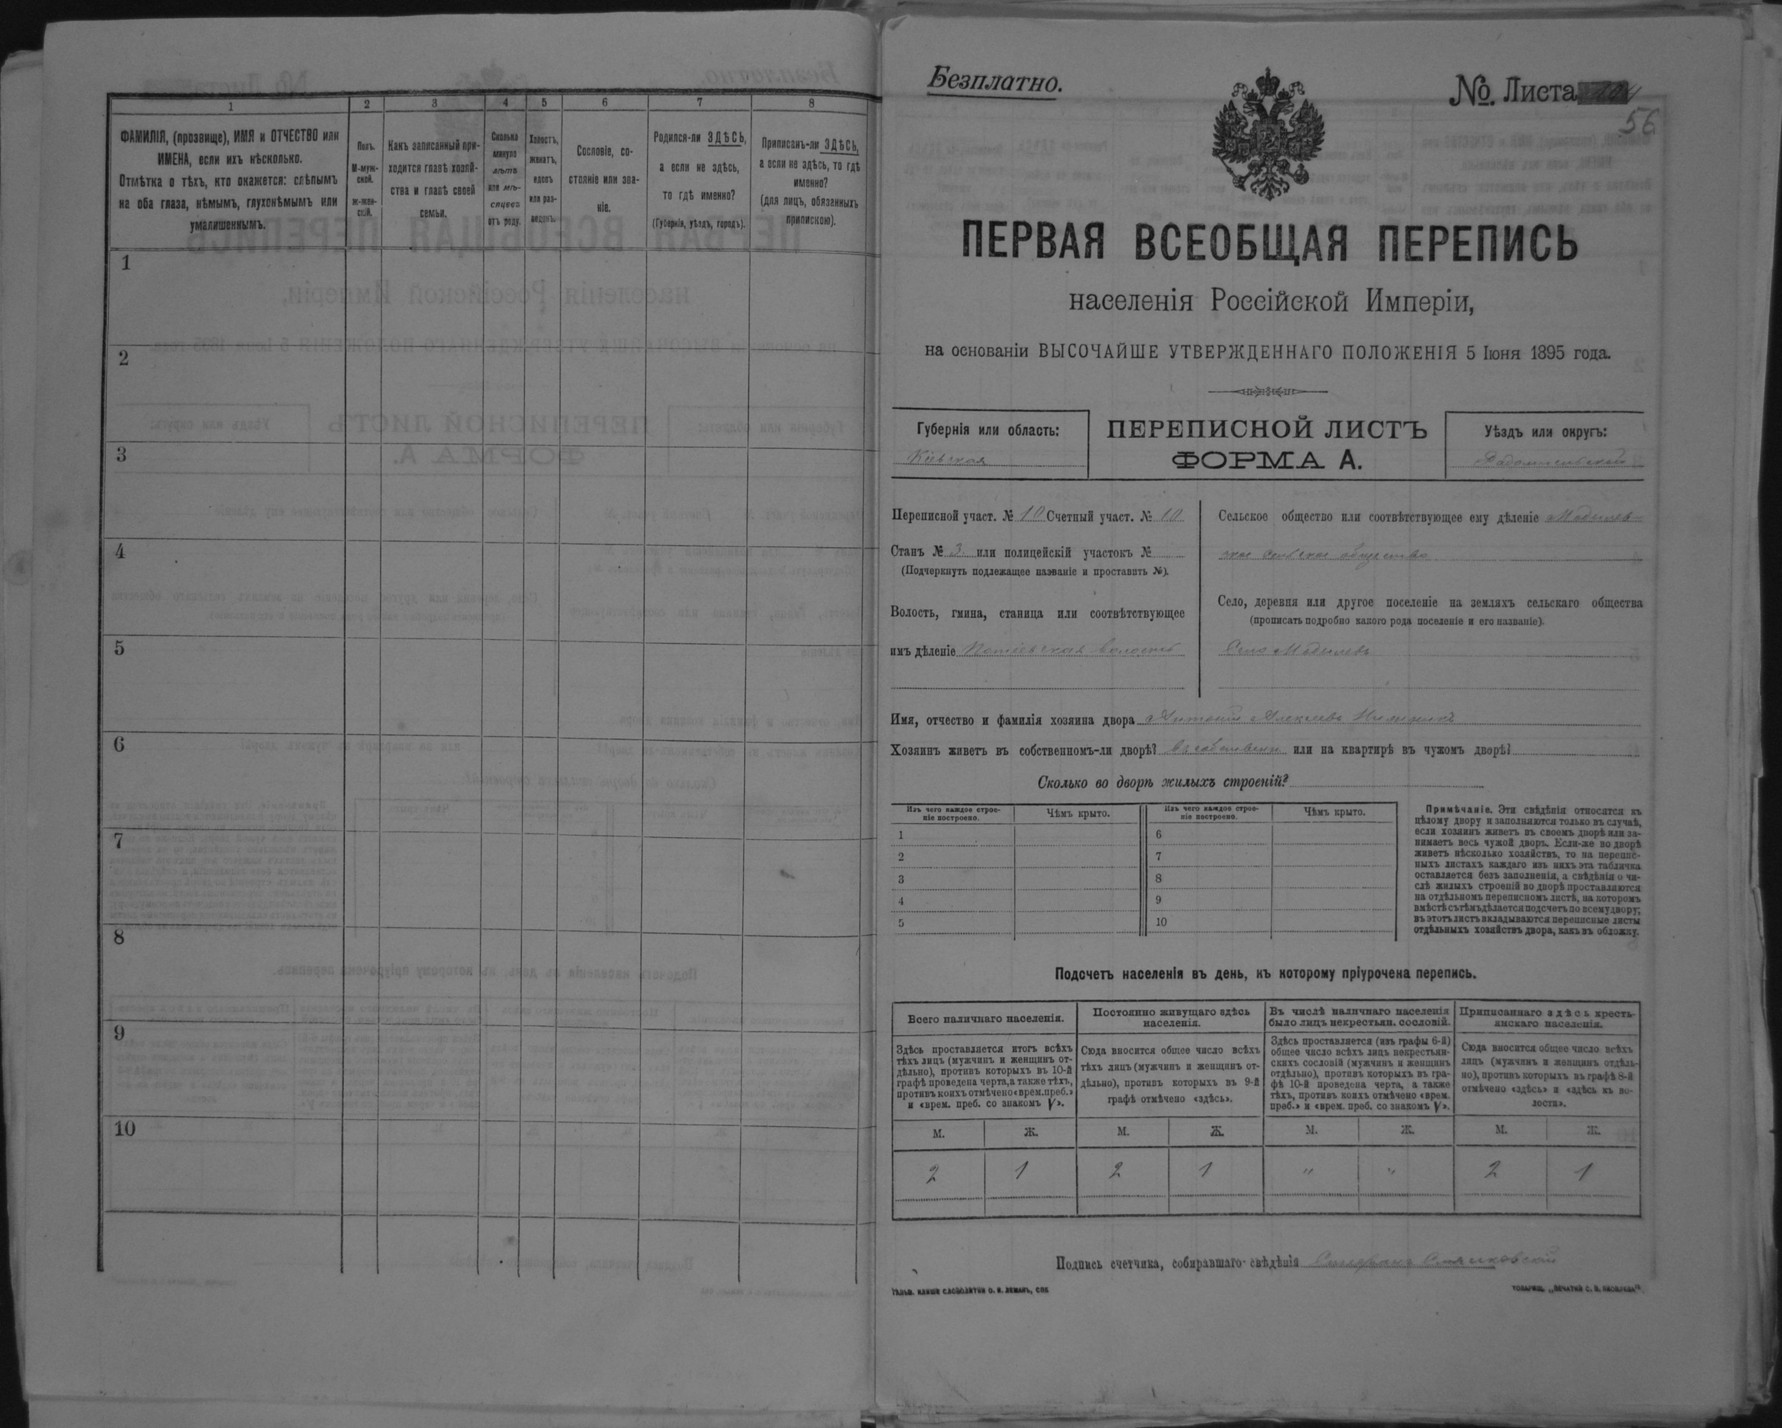 1
2
3
4
5
6
7
8
ФАМИЛІЯ, (прозвище), ИМЯ и ОТЧЕСТВО или
ИМЕНА, если ихъ нѣсколько.
Отмѣтка о тѣхъ, кто окажется: слѣпымъ
на оба глаза, нѣмымъ, глухонѣмымъ или
умалишеннымъ.
Полъ.
М-муж-
ской.
Ж-жен-
скій.
Какъ записанный при-
ходится главѣ хозяй-
ства и главѣ своей
семьи.
Сколько
минуло
лѣтъ
или мѣ-
сяцевъ
отъ роду.
Холостъ,
женатъ,
вдовъ
или раз-
веденъ.
Сословіе, со-
стояніе или зва-
ніе.
Родился-ли ЗДѢСЬ,
а если не здѣсь,
то гдѣ именно?
(Губернія, уѣздъ, городъ).
Приписанъ-ли ЗДѢСЬ,
а если не здѣсь, то гдѣ
именно?
(для лицъ, обязанныхъ
припискою).
1
2
3
4
5
6
7
8
9
10
Безплатно.
№ Листа
56
ПЕРВАЯ ВСЕОБЩАЯ ПЕРЕПИСЬ
населенія Россійской Имперіи,
на основаніи ВЫСОЧАЙШЕ УТВЕРЖДЕННАГО ПОЛОЖЕНІЯ 5 Іюня 1895 года.
Губернія или область:
Кіевская
ПЕРЕПИСНОЙ ЛИСТЪ
ФОРМА А.
Уѣздъ или округъ:
Радомысльскій
Переписной участ. № 10 Счетный участ. № 10
Станъ № 3 или полицейскій участокъ №
(Подчеркнуть подлежащее названіе и проставить №).
Волость, гмина, станица или соотвѣтствующее
имъ дѣленіе Потіевская волость
Сельское общество или соотвѣтствующее ему дѣленіе
ское сельское общество
Село, деревня или другое поселеніе на земляхъ сельскаго общества
(прописать подробно какого рода поселеніе и его названіе).
Село
Имя, отчество и фамилія хозяина двора Антоній Алексѣевъ
Хозяинъ живетъ въ собственномъ-ли дворѣ? въ собствен или на квартирѣ въ чужомъ дворѣ?
Сколько во дворѣ жилыхъ строеній?
Изъ чего каждое строе-
ніе построено.
Чѣмъ крыто.
Изъ чего каждое строе-
ніе построено.
Чѣмъ крыто.
1
2
3
4
5
6
7
8
9
10
Примѣчаніе. Эти свѣдѣнія относятся къ
цѣлому двору и заполняются только въ случаѣ,
если хозяинъ живетъ въ своемъ дворѣ или за-
нимаетъ весь чужой дворъ. Если-же во дворѣ
живетъ нѣсколько хозяйствъ, то на перепис-
ныхъ листахъ каждаго изъ нихъ эта табличка
оставляется безъ заполненія, а свѣдѣнія о чи-
слѣ жилыхъ строеній во дворѣ проставляются
на отдѣльномъ переписномъ листѣ, на которомъ
вмѣстѣ съ тѣмъ дѣлается подсчетъ по всему двору;
въ этотъ листъ вкладываются переписные листы
отдѣльныхъ хозяйствъ двора, какъ въ обложку.
Подсчетъ населенія въ день, къ которому пріурочена перепись.
Всего наличнаго населенія.
Постоянно живущаго здѣсь
населенія.
Въ числѣ наличнаго населенія
было лицъ некрестьян. сословій.
Приписаннаго здѣсь кресть-
янскаго населенія.
Здѣсь проставляется итогъ всѣхъ
тѣхъ лицъ (мужчинъ и женщинъ от-
дѣльно), противъ которыхъ въ 10-й
графѣ проведена черта, а также тѣхъ,
противъ коихъ отмѣчено «врем. преб.»
и «врем. преб. со знакомъ V».
Сюда вносится общее число всѣхъ
тѣхъ лицъ (мужчинъ и женщинъ от-
дѣльно), противъ которыхъ въ 9-й
графѣ отмѣчено «здѣсь».
Здѣсь проставляется (изъ графы 6-й)
общее число всѣхъ лицъ некрестьян-
скихъ сословій (мужчинъ и женщинъ
отдѣльно), противъ которыхъ въ гра-
фѣ 10-й проведена черта, а также
тѣхъ, противъ коихъ отмѣчено «врем.
преб.» и «врем. преб. со знакомъ V».
Сюда вносится общее число всѣхъ
лицъ (мужчинъ и женщинъ отдѣль-
но), противъ которыхъ въ графѣ 8-й
отмѣчено «здѣсь» и «здѣсь къ во-
лости».
М. Ж. М. Ж. М. Ж. М. Ж.
2 1 2 1 " " 2 1
Подпись счетчика, собиравшаго свѣдѣнія